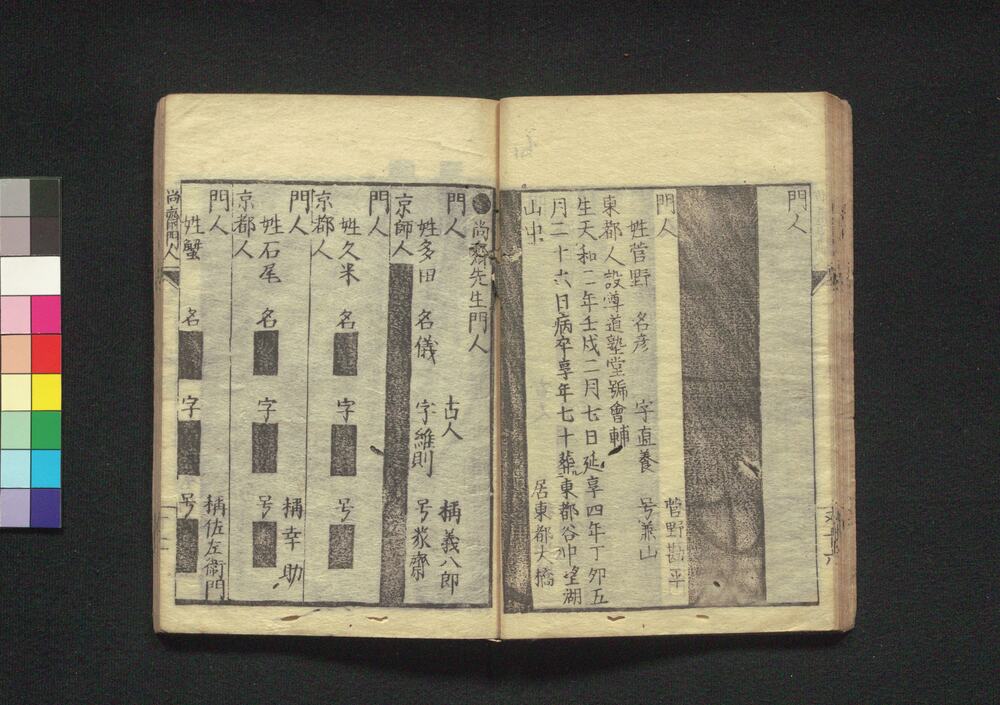 門人
門人
菅野勘平
姓菅野 名彦 字直養 号兼山
東都人設尊道塾堂號會輔
生天和二年壬戌二月七日延享四年丁夘五
月二十六日病卒享年七十葬東都谷中望湖
山中
居東都大橋
●尚齋先生門人
門人 古人 稱義八郎
姓多田 名儀 字維則 号蒙齋
京師人
門人
姓久米 名■ 字■ 号■
京都人
門人 稱幸助
姓石尾 名■ 字■ 号■
京都人
門人 稱佐左衞門
姓蟹 名■ 字■ 号■
尚齋門人